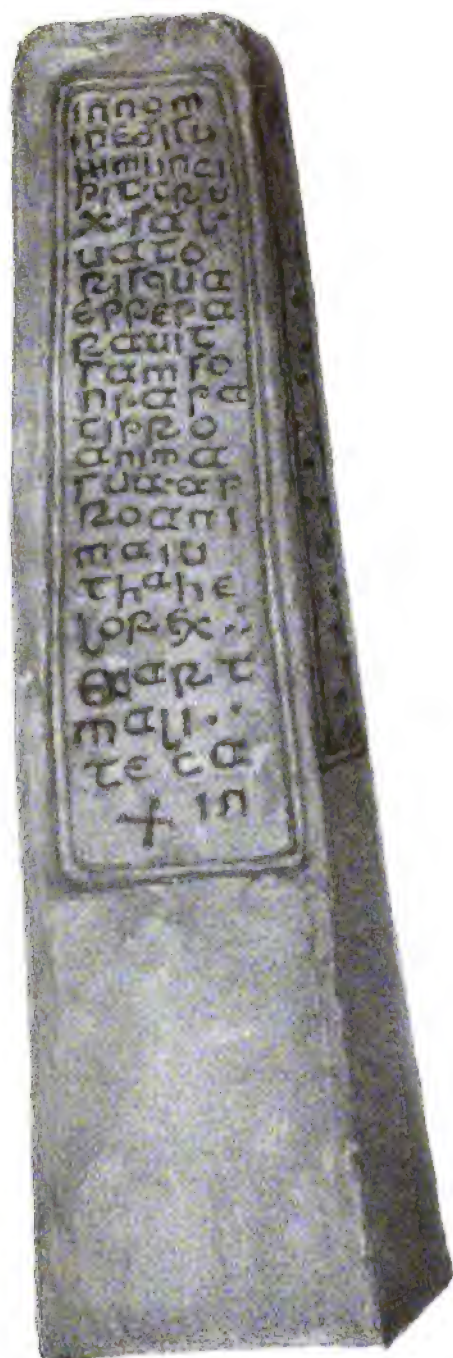 innom
inediſu
mmiinci
pit·cru
x·sal·
uato
risqua
eprepa
rauit
samso
ni·apa
tipro
anima
sua·ep
roani
maiu
thahe
lorex∴
etart
mali∴
teca
+ in